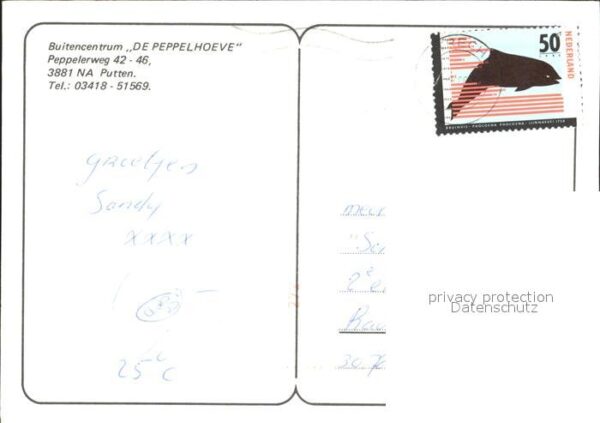 Buitencentrum „DE PEPPELHOEVE"
Peppelerweg 42 - 46,
3881 NA Putten.
Tel.: 03418 - 51569.
groetjes
Sandy
xxxx
25°C
50
NEDERLAND
BRUINVIS - PHOCOENA PHOCOENA (LINNAEUS) 1758
privacy protection
Datenschutz